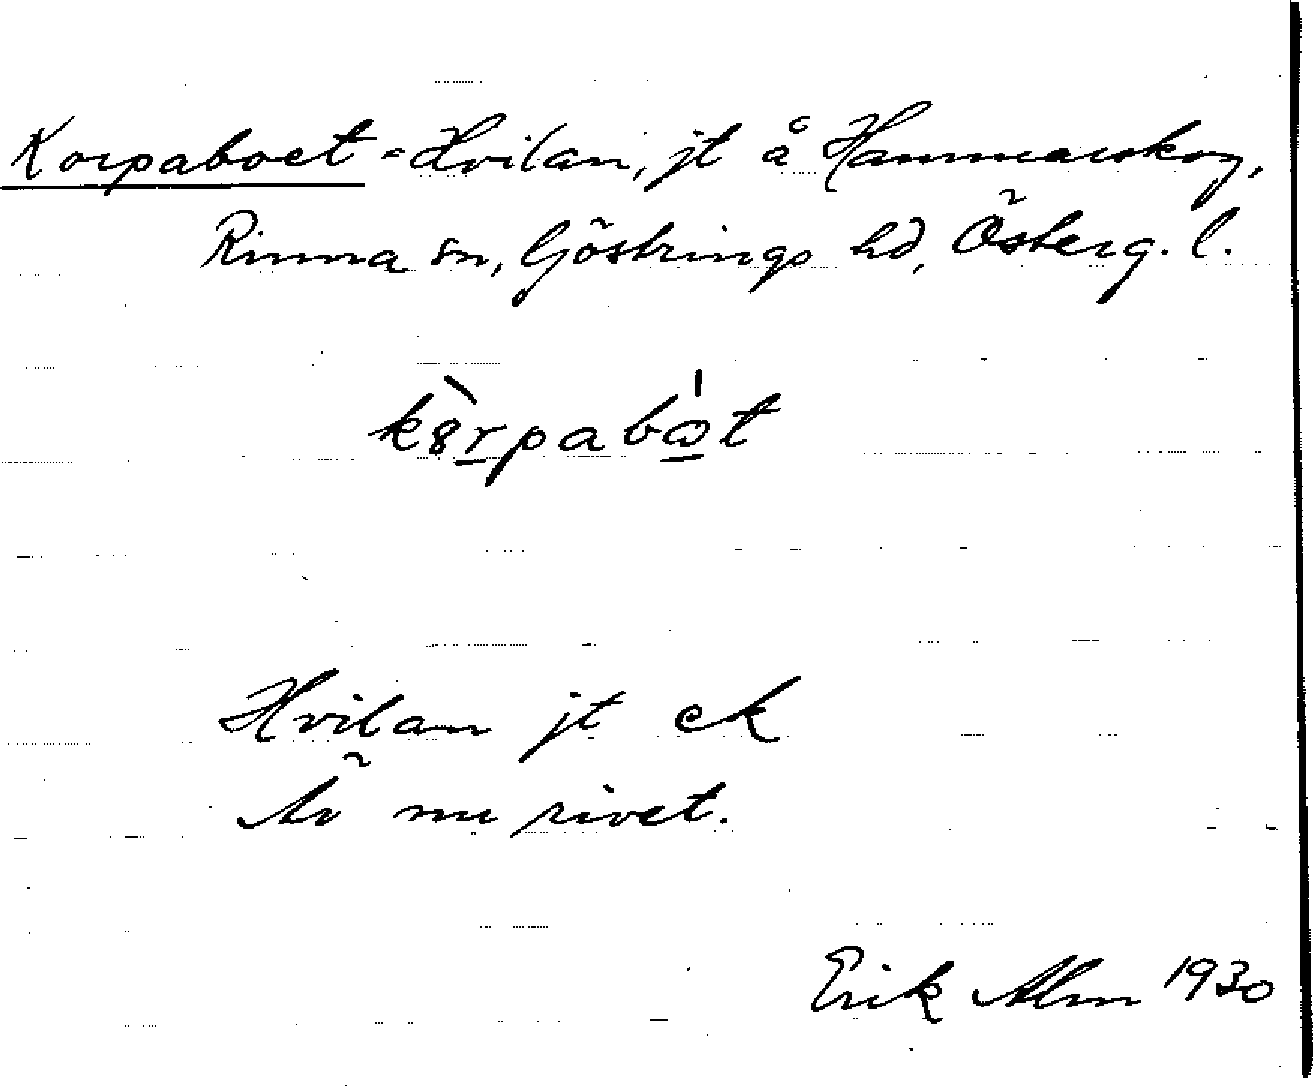 Korpaboet = Hvilan, jt å Hammarskog,
Rinna sn, Göstrings hd, Österg. l.
Hvilan jt ek
Är nu rivet.
Erik Alm 1930